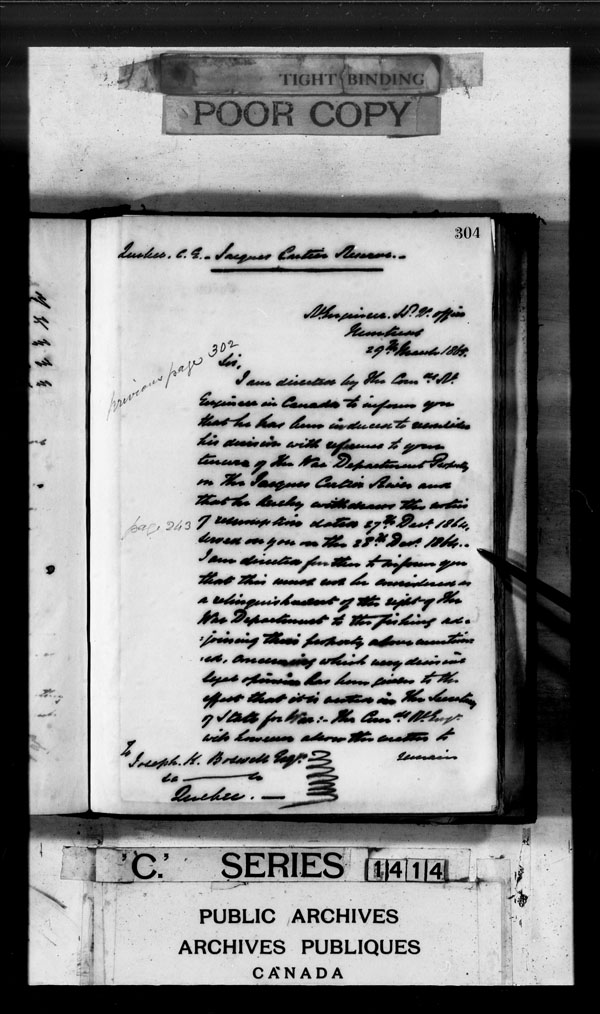 TIGHT BINDING
POOR COPY
304
Quebec. C.E. - Jacques Cartier Reserve. -
Rl. Engineer. Dt. Office
Montreal
29th March 1865.
previous page 302
Sir,
I am directed by the Comg Rl.
Engineer in Canada to inform you
that he has been induced to reconsider
his decision with reference to your
tenure of the War Department Property
on the Jacques Cartier River and
that he hereby withdraws the notice
page 243
of resumption dated 27th Decr. 1864,
served on you on the 28th Decr. 1864. -
I am directed further to inform you
that this must not be considered as
a relinquishment of the right of the
War Department to the fishing ad-
-joining their property above mention
-ed, concerning which very decisive
legal opinion has been given to the
effect that it is vested in the Secretary
of State for War: - The Comg Rl. Engr.
will however allow the matter to
remain
To
Joseph. K. Boswell Esqr.
&c &c
Quebec. -
'C.' SERIES 1414
PUBLIC ARCHIVES
ARCHIVES PUBLIQUES
CANADA